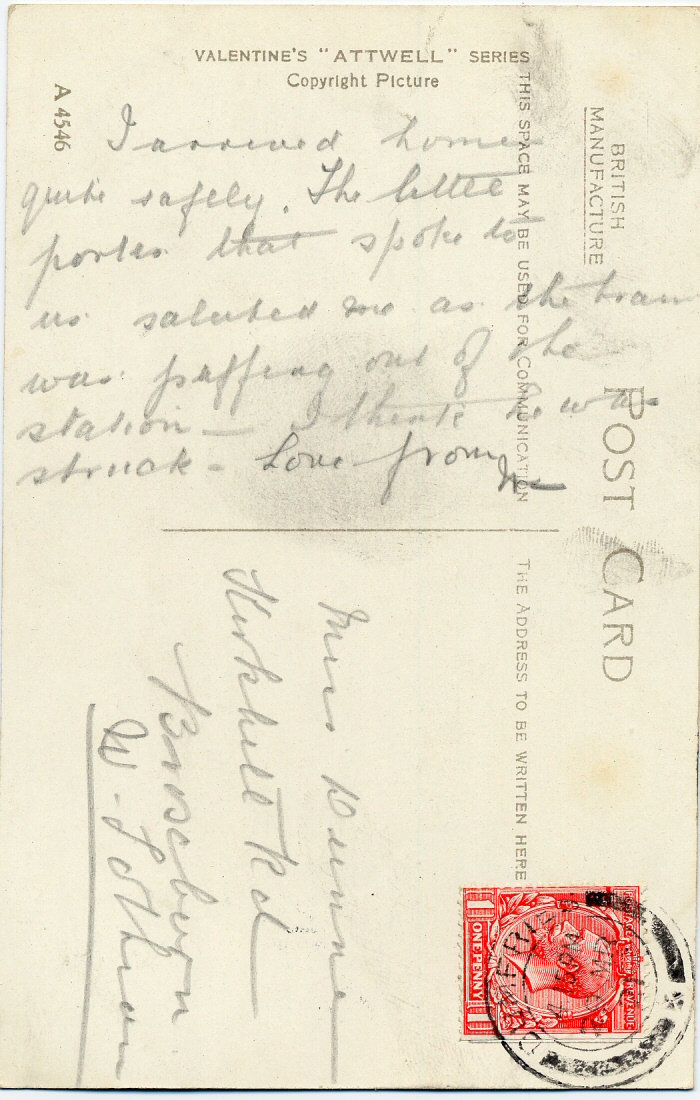 VALENTINE'S "ATTWELL" SERIES
Copyright Picture
A 4546
I arrived home
quite safely. The little
porter that spoke to
us saluted me as the train
was puffing out of the
station — I think he was
struck — Love from
BRITISH
MANUFACTURE
POST CARD
THIS SPACE MAY BE USED FOR COMMUNICATION
THE ADDRESS TO BE WRITTEN HERE
Dunne
Kirkhill Rd
Broxburn
W-Lothian
POSTAGE REVENUE
ONE PENNY
DUMFRIES